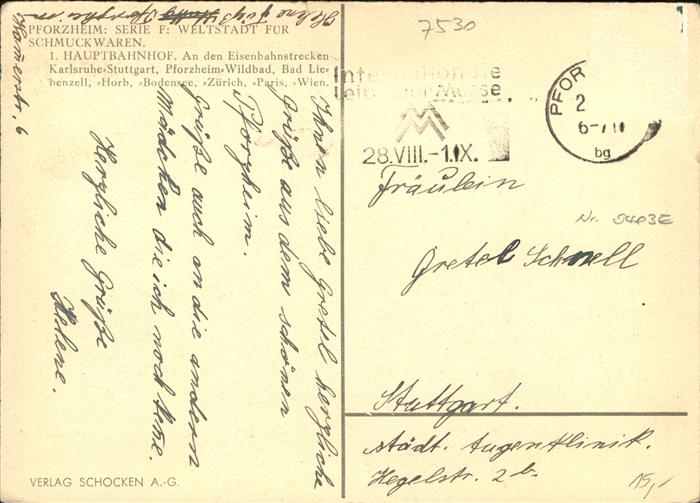 Helene
Pforzheim
PFORZHEIM: SERIE F: WELTSTADT FÜR
SCHMUCKWAREN.
1. HAUPTBAHNHOF. An den Eisenbahnstrecken
Karlsruhe-Stuttgart, Pforzheim-Wildbad, Bad Lie-
benzell, „Horb, „Bodensee, „Zürich, „Paris, „Wien.
Ihnen liebe Gretel herzliche
Grüße aus dem schönen
Pforzheim.
Grüße auch an die andern
Mädchen die ich noch kene.
Herzliche Grüße
Helene.
VERLAG SCHOCKEN A.-G.
7530
Internationale
Leipziger Messe
28.VIII.-1.IX.
PFOR
2
bg
Fräulein
Nr. 9403E
Gretel Schnell
Stuttgart.
städt. Augenklinik.
Hegelstr. 2b.
15,-